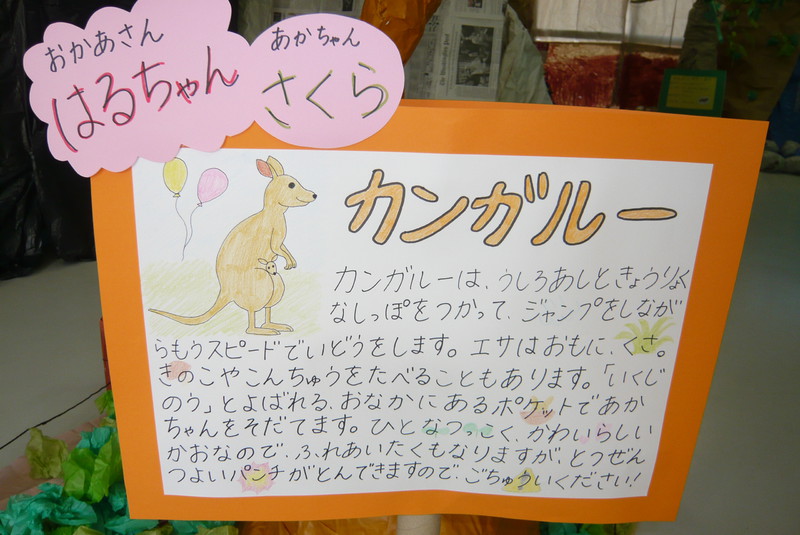 おかあさん
はるちゃん
あかちゃん
さくら
カンガルー
カンガルーは、うしろあしときょうりょく
なしっぽをつかって、ジャンプをしなが
らもうスピードでいどうをします。エサはおもに、くさ。
きのこやこんちゅうをたべることもあります。「いくじ
のう」とよばれる、おなかにあるポケットであか
ちゃんをそだてます。ひとなつっこく、かわいらしい
かおなので、ふれあいたくもなりますが、とつぜん
つよいパンチがとんできますので、ごちゅういください!